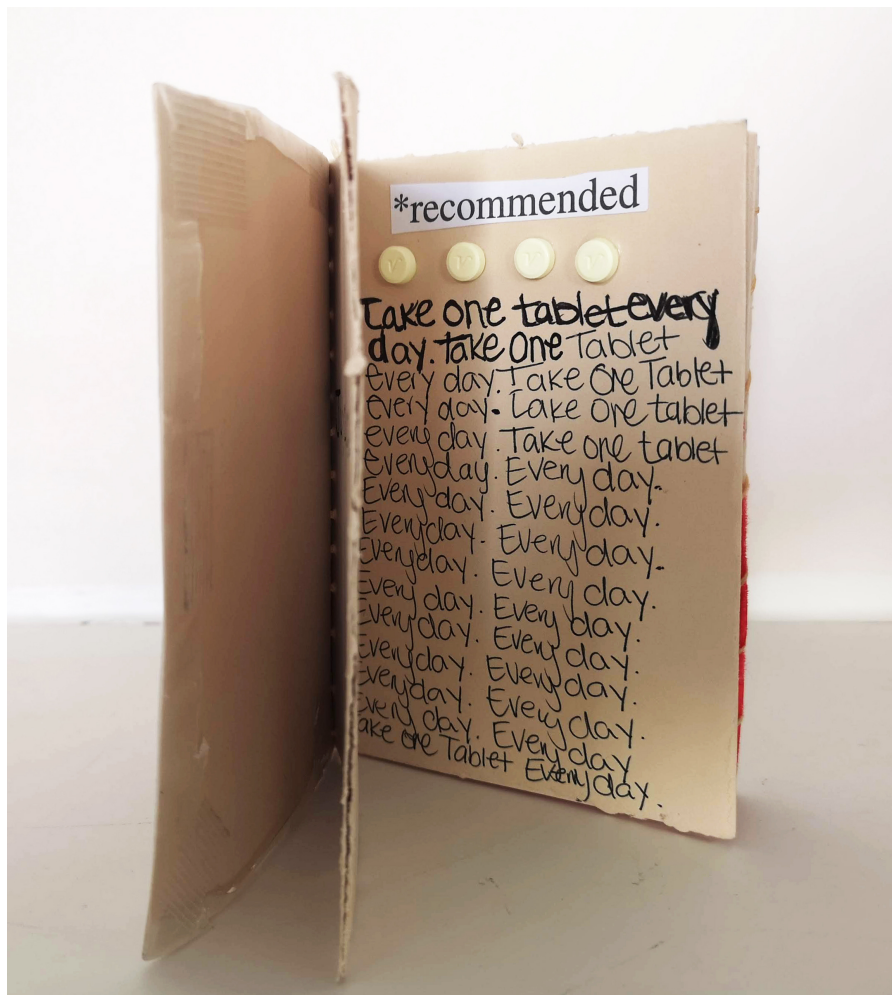 *recommended
Take one tablet every
day. Take One Tablet
every day. Take One Tablet
every day. Take one tablet
every day. Take one tablet
Everyday. Every day.
Every day. Everyday.
Everyday. Everyday.
Everyday. Every day.
Every day. Every day.
Every day. Every day.
Everyday. Everyday.
Everyday. Every day.
Every day. Everyday
ake one Tablet Everyday.